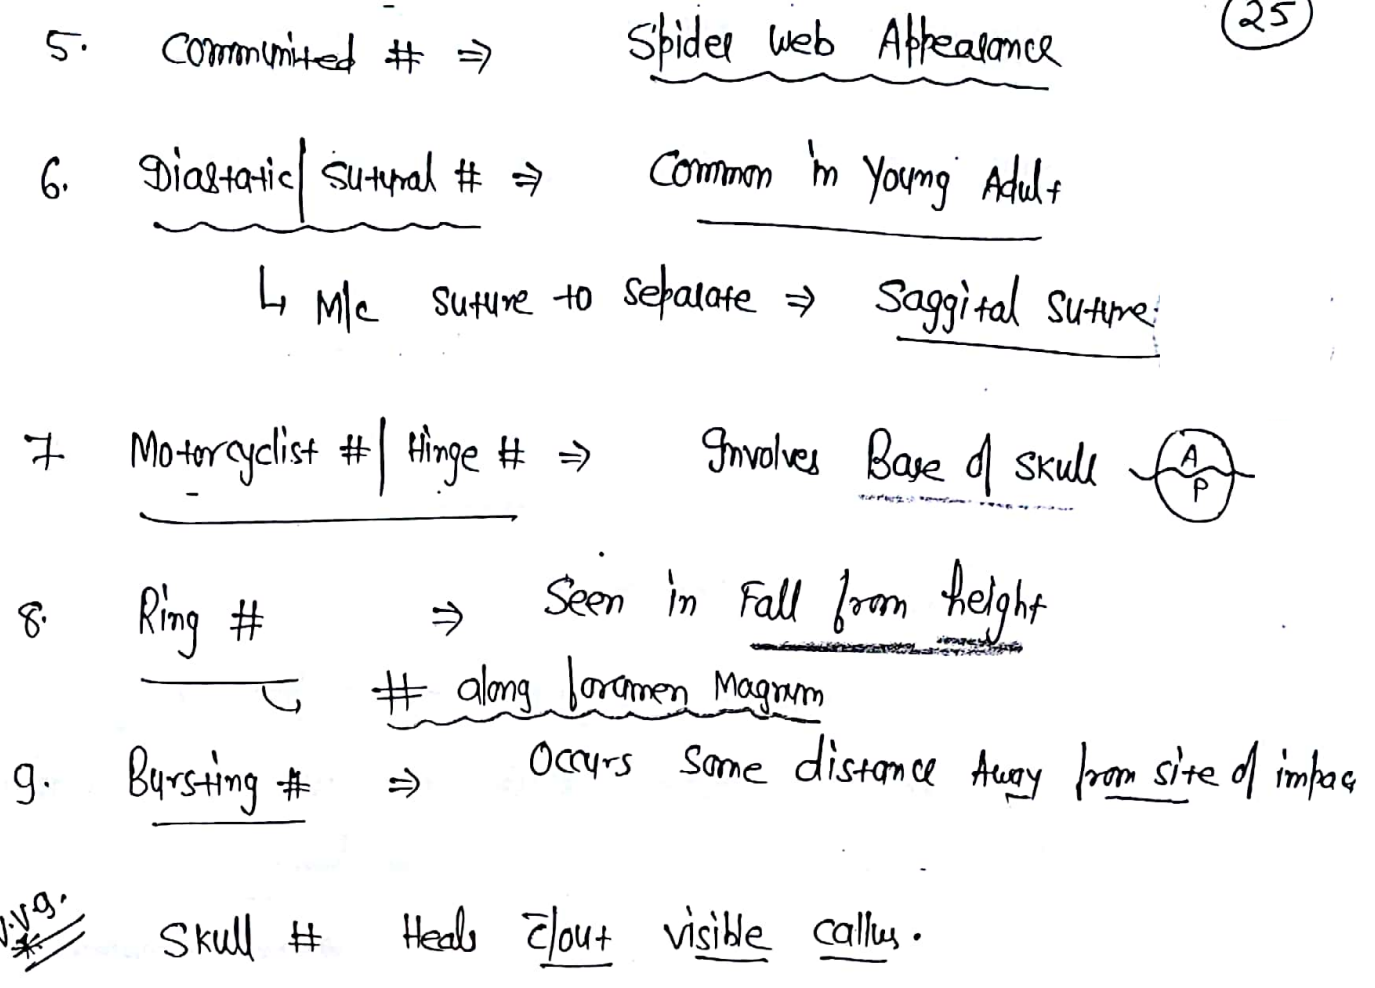 25
5. Communited # ⇒ Spider web Appearance
6. Diastatic | Sutural # ⇒ Common in Young Adult
↳ M/c suture to separate ⇒ Saggital suture
7 Motorcyclist # | Hinge # ⇒ Involves Base of skull A P
8. Ring # ⇒ Seen in Fall from height
# along foramen Magnum
9. Bursting # ⇒ Occurs some distance Away from site of impac
Skull # Heals c̄/out visible callus.